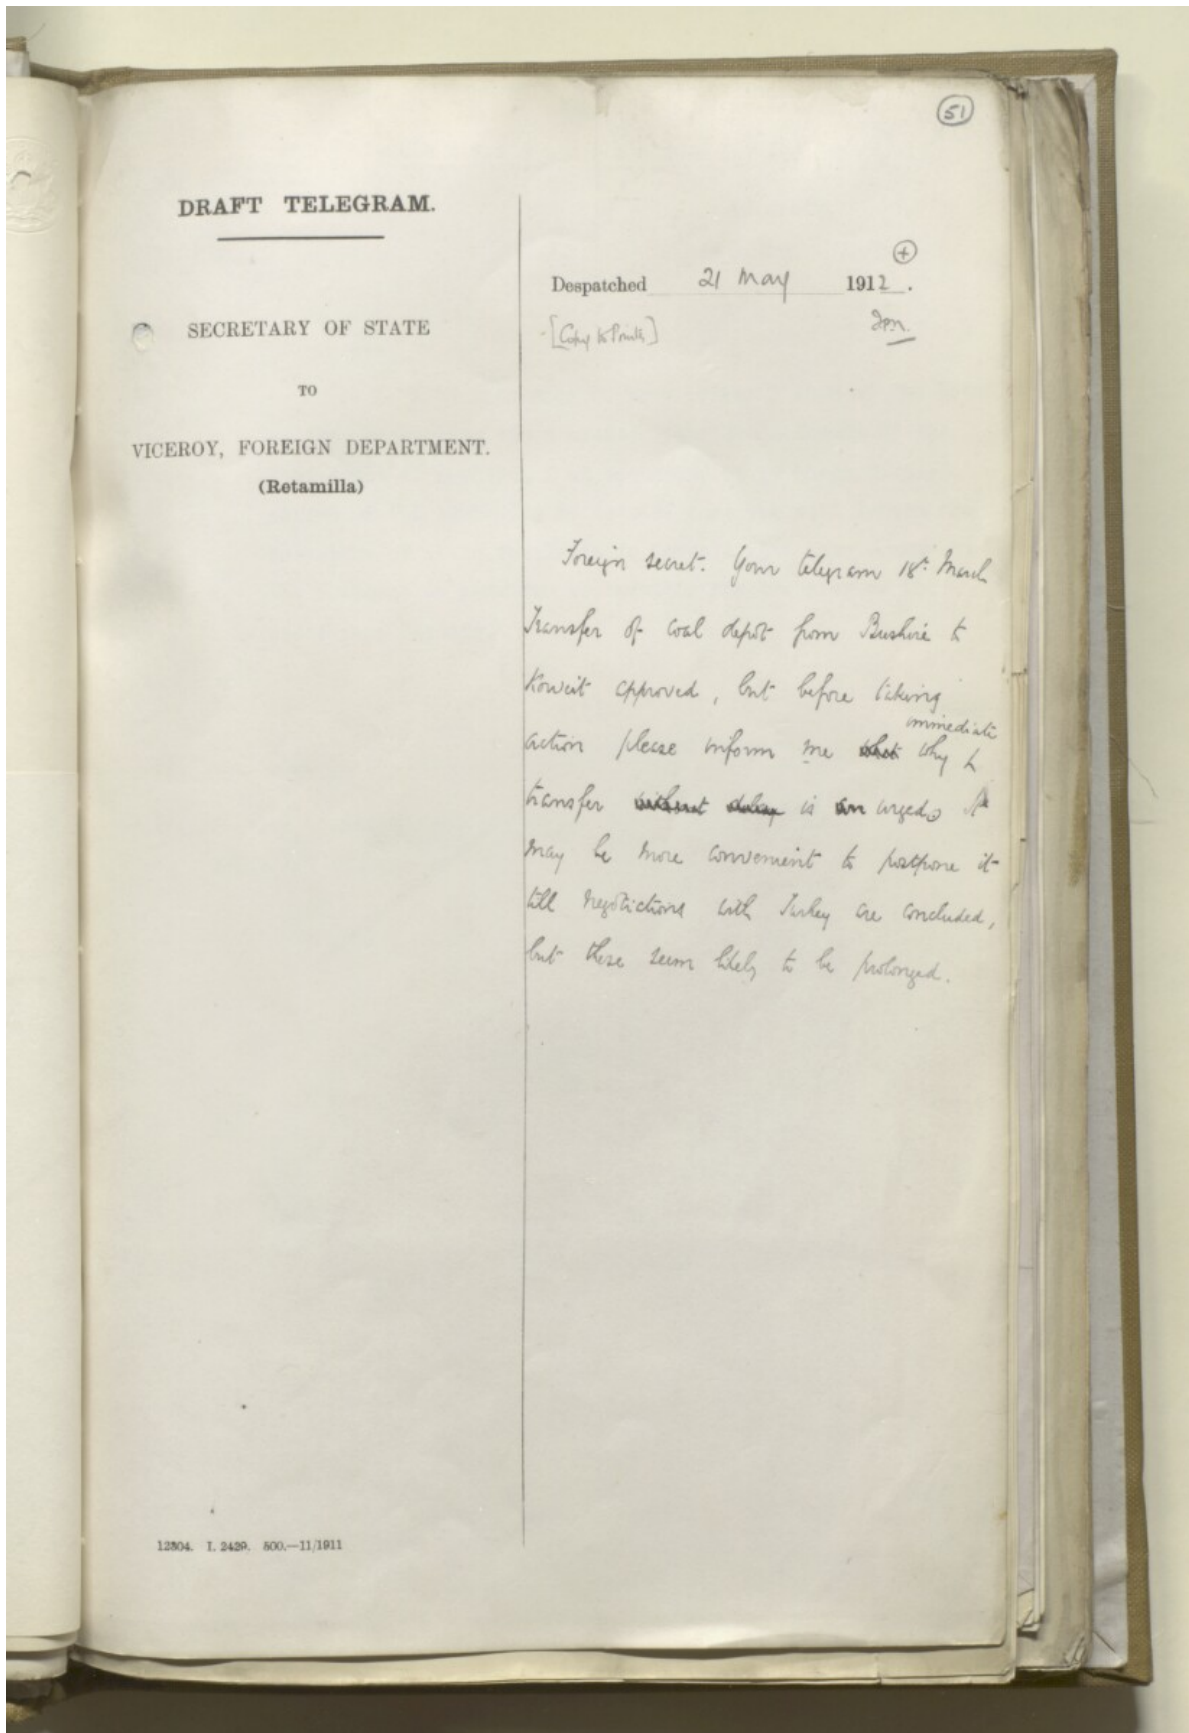 51
DRAFT TELEGRAM.
SECRETARY OF STATE
TO
VICEROY, FOREIGN DEPARTMENT.
(Retamilla)
Despatched 21 May 1912.
[Copy to
Foreign secret. Your telegram 18th March
Transfer of coal depôt from Bushire to
Koweit approved, but before taking
action please inform me why immediate
transfer is urged. It
may be more convenient to postpone it
till negotiations with Turkey are concluded,
but these seem likely to be prolonged.
12304. I. 2429. 500.—11/1911